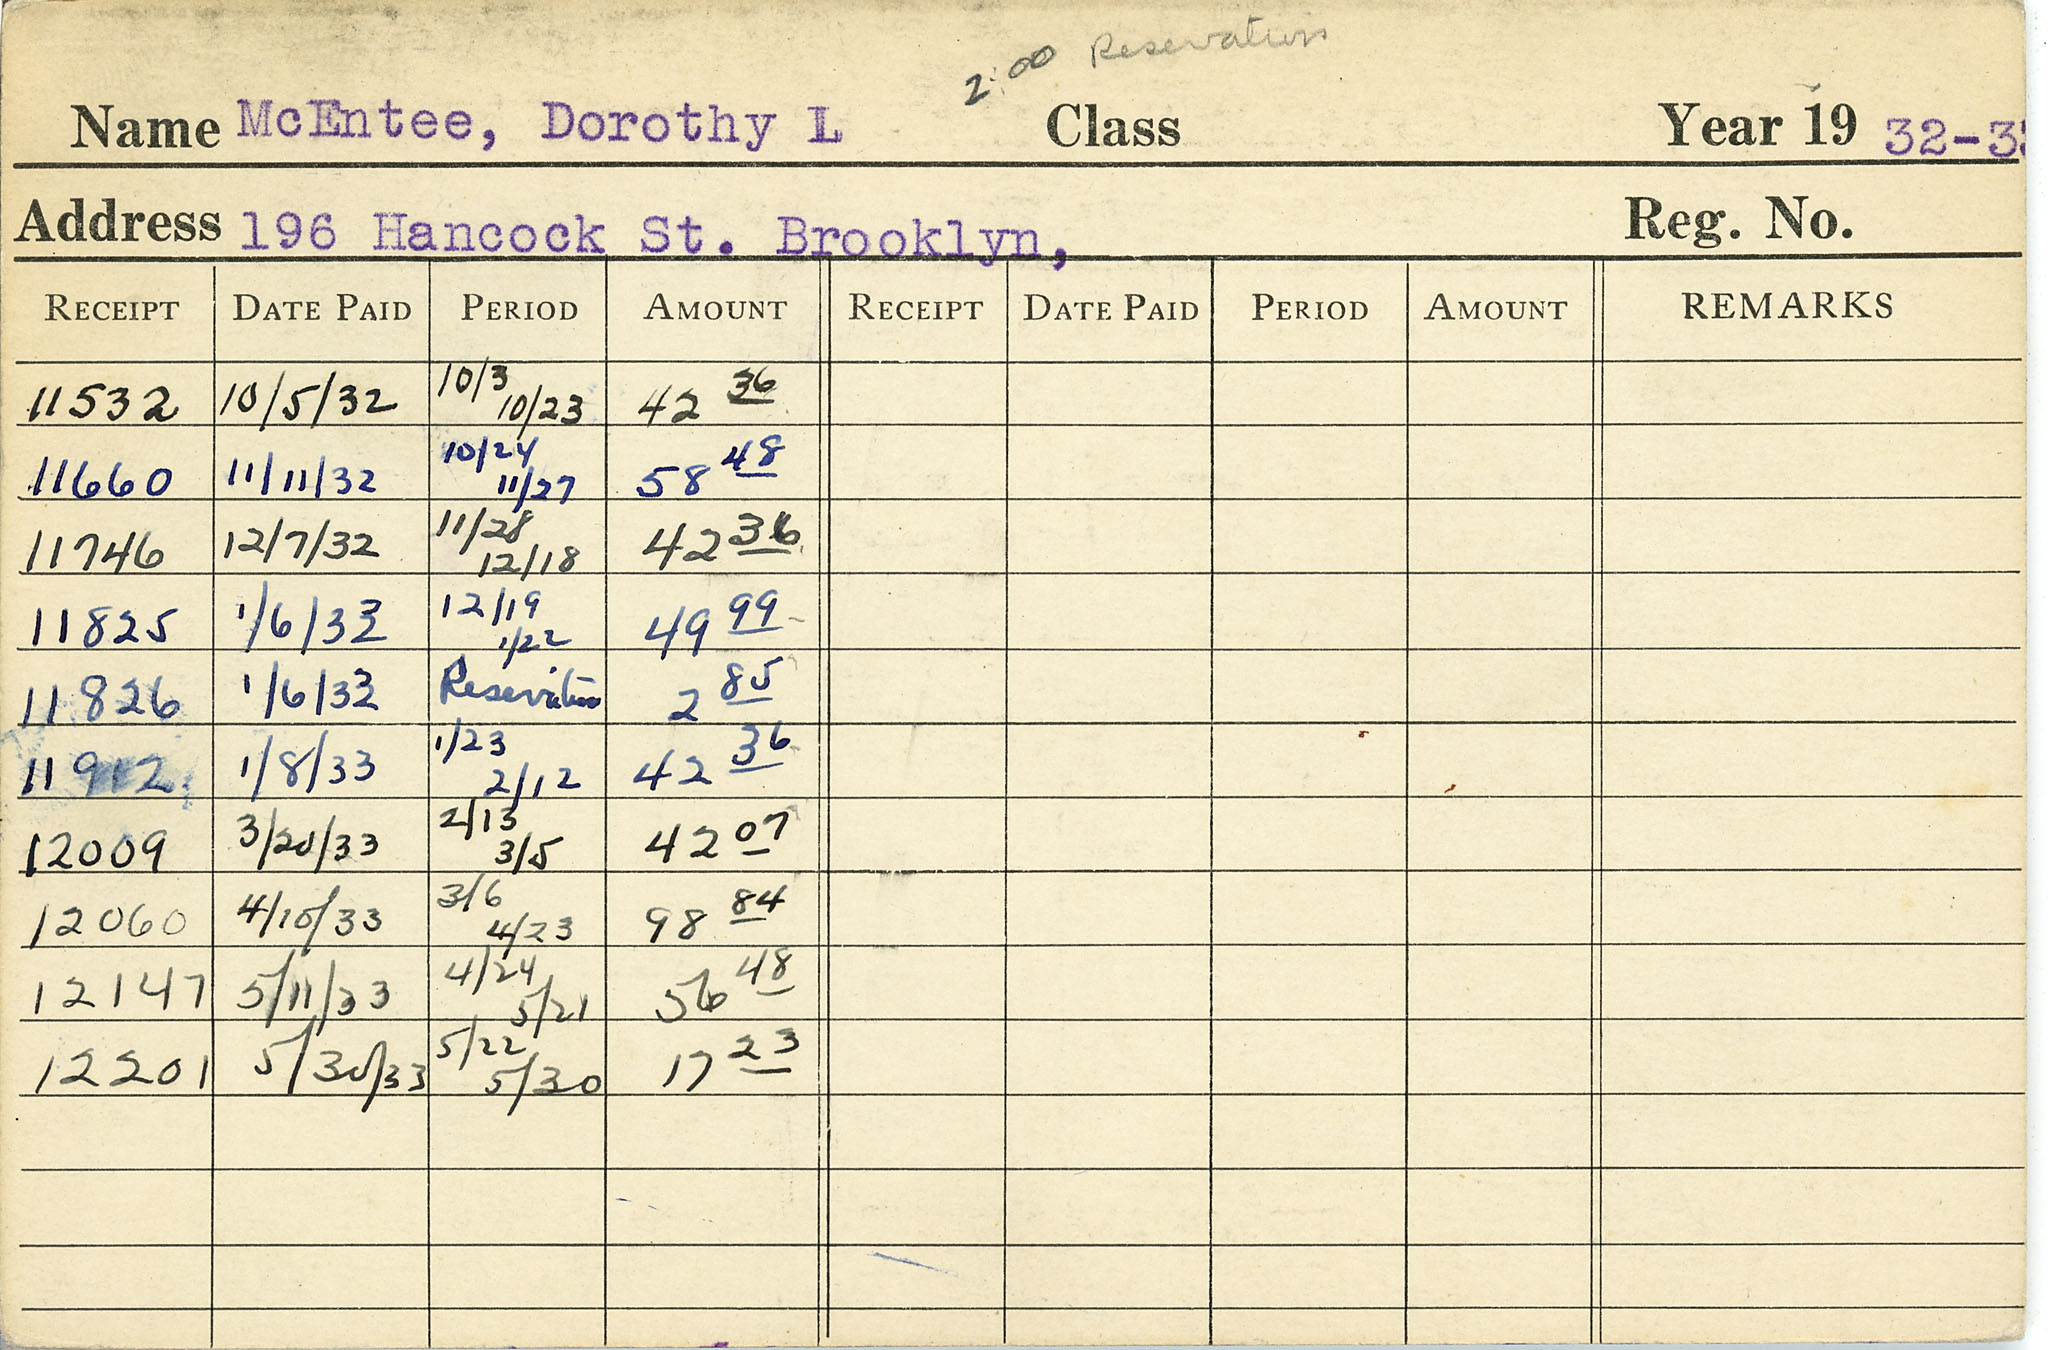 2:00 Reservation
Name McEntee, Dorothy L Class Year 19 32-33
Address 196 Hancock St. Brooklyn, Reg. No.
RECEIPT DATE PAID PERIOD AMOUNT RECEIPT DATE PAID PERIOD AMOUNT REMARKS
11532 10/5/32 10/3 10/23 42 36
11660 11/11/32 10/24 11/27 58 48
11746 12/7/32 11/28 12/18 42 36
11825 1/6/33 12/19 1/22 49 99
11826 1/6/33 Reservation 2 85
11912 1/8/33 1/23 2/12 42 36
12009 3/20/33 2/13 3/5 42 07
12060 4/10/33 3/6 4/23 98 84
12147 5/11/33 4/24 5/21 56 48
12201 5/30/33 5/22 5/30 17 23